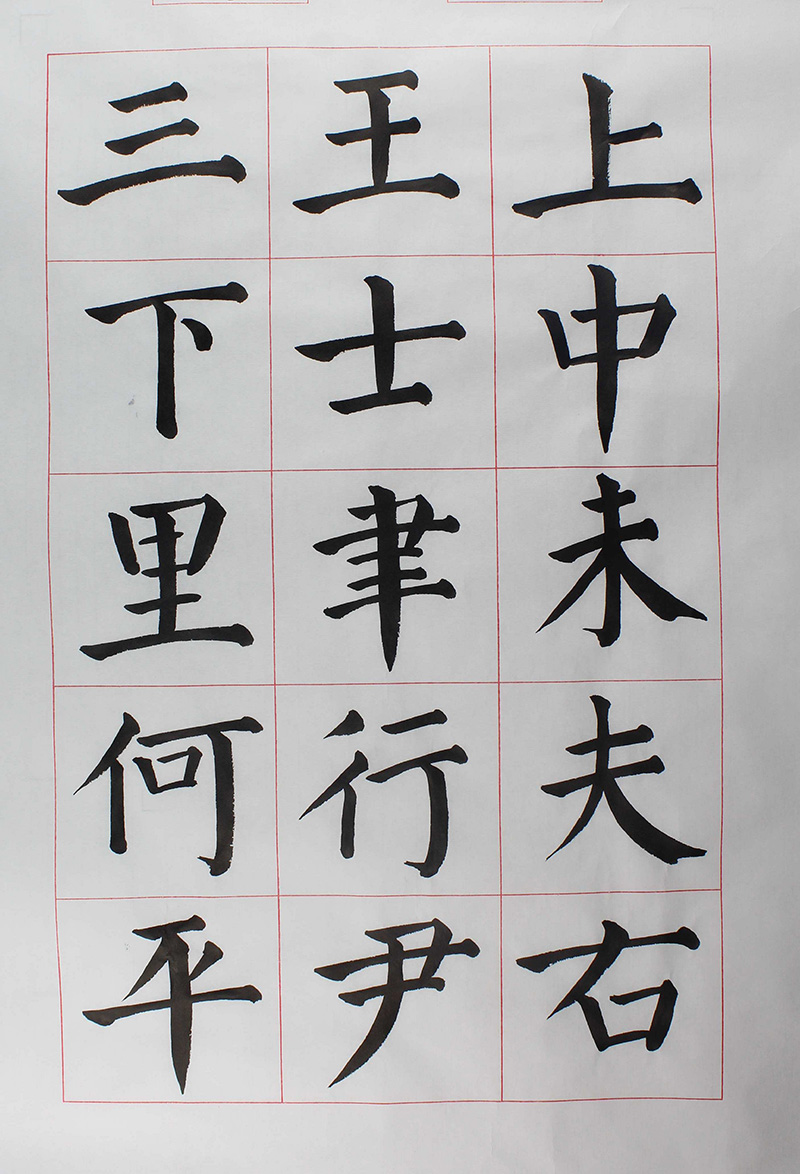 上中未夫右
王士聿行尹
三下里何平